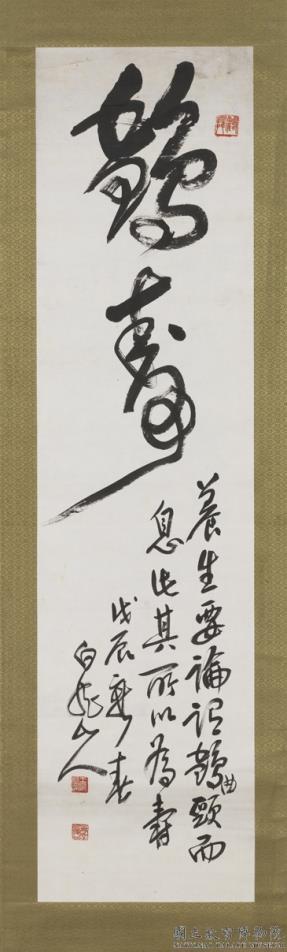 鶴壽
養生要論謂鶴曲頸而
息此其所以為壽
戊辰新春
白龍山人
國立故宮博物院
NATIONAL PALACE MUSEUM